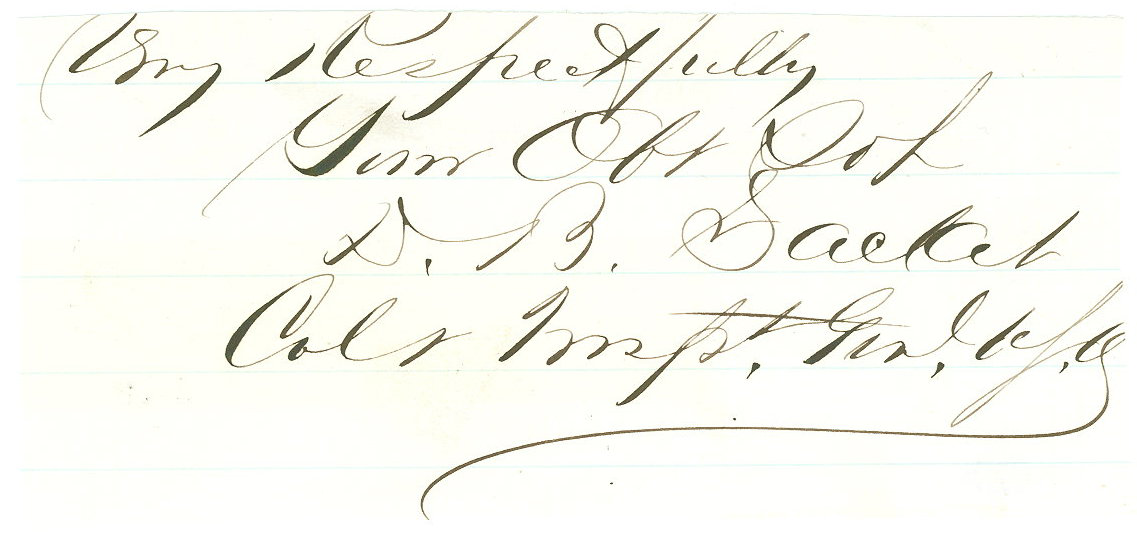 Very Respectfully
Your Obt Svt
D. B. Sacket
Col & Insp't. Gen'l. U.S.A